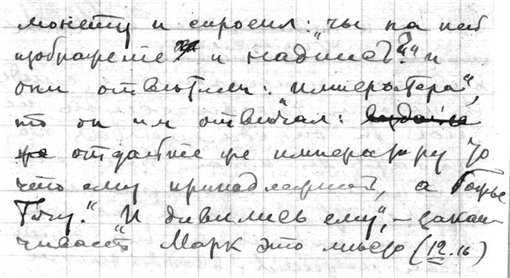 монету и спросил: "чьи на ней
изображение и надпись?" и
они ответили: императора",
то он им отвечал:
отдайте же императору то
что ему принадлежит, а Божье
Богу." И дивились ему", – закан-
чивает Марк это место (12.16)